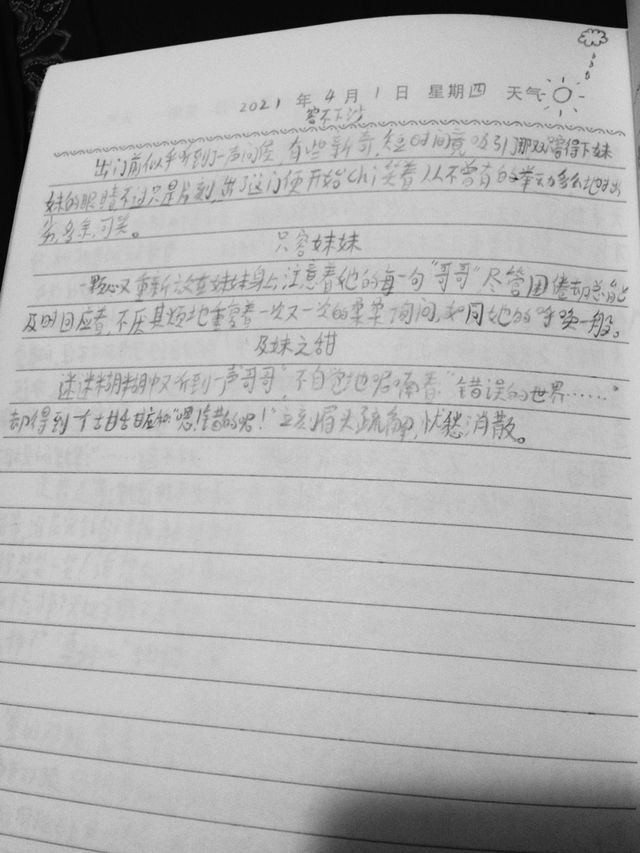 2021 年 4 月 1 日 星期四 天气
容不下沙
出门前似乎听到一声问候,有些新奇,短时间竟吸引那双容得下妹
妹的眼睛不过只是片刻,出了这门便开始chi笑着从不曾有的举动多么地
多余,可笑。
只容妹妹
一颗心又重新放在妹妹身上,注意着她的每一句“哥哥”尽管困倦却总能
及时回应着,不厌其烦地重复着一次又一次的柔柔询问,如同她的呼唤一般。
及妹之甜
迷迷糊糊中又听到一声“哥哥”,不自觉地呢喃着“错误的世界……”
却得到一个甘甘应和“嗯!错的呢!”立刻眉头疏解,忧愁消散。